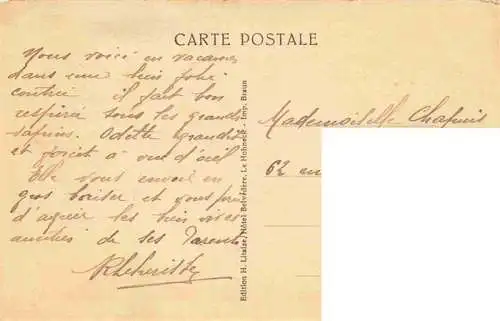 CARTE POSTALE
Nous voici en vacances
dans une bien jolie
contrée il fait bon
respirer sous les grands
sapins. Odette grandit
et forcit à vue d'œil
Elle vous envoie un
gros baiser et vous prie
d'agréer les bien vives
amitiés de ses Parents
Mademoiselle Chapuis
62
Edition H. Litaize, Hôtel Belvédère, Le Hohneck - Imp. Braun